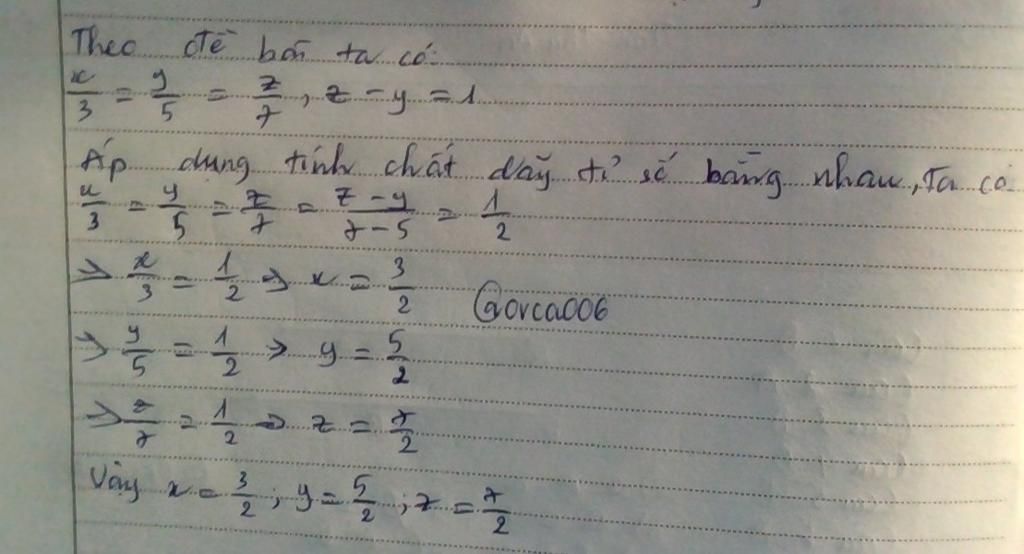 Theo đề bài ta có:
x/3 = y/5 = z/7, z - y = 1
Áp dụng tính chất dãy tỉ số bằng nhau, ta có
x/3 = y/5 = z/7 = (z - y)/(7 - 5) = 1/2
=> x/3 = 1/2 => x = 3/2
@orca006
=> y/5 = 1/2 => y = 5/2
=> z/7 = 1/2 => z = 7/2
Vậy x = 3/2; y = 5/2; z = 7/2